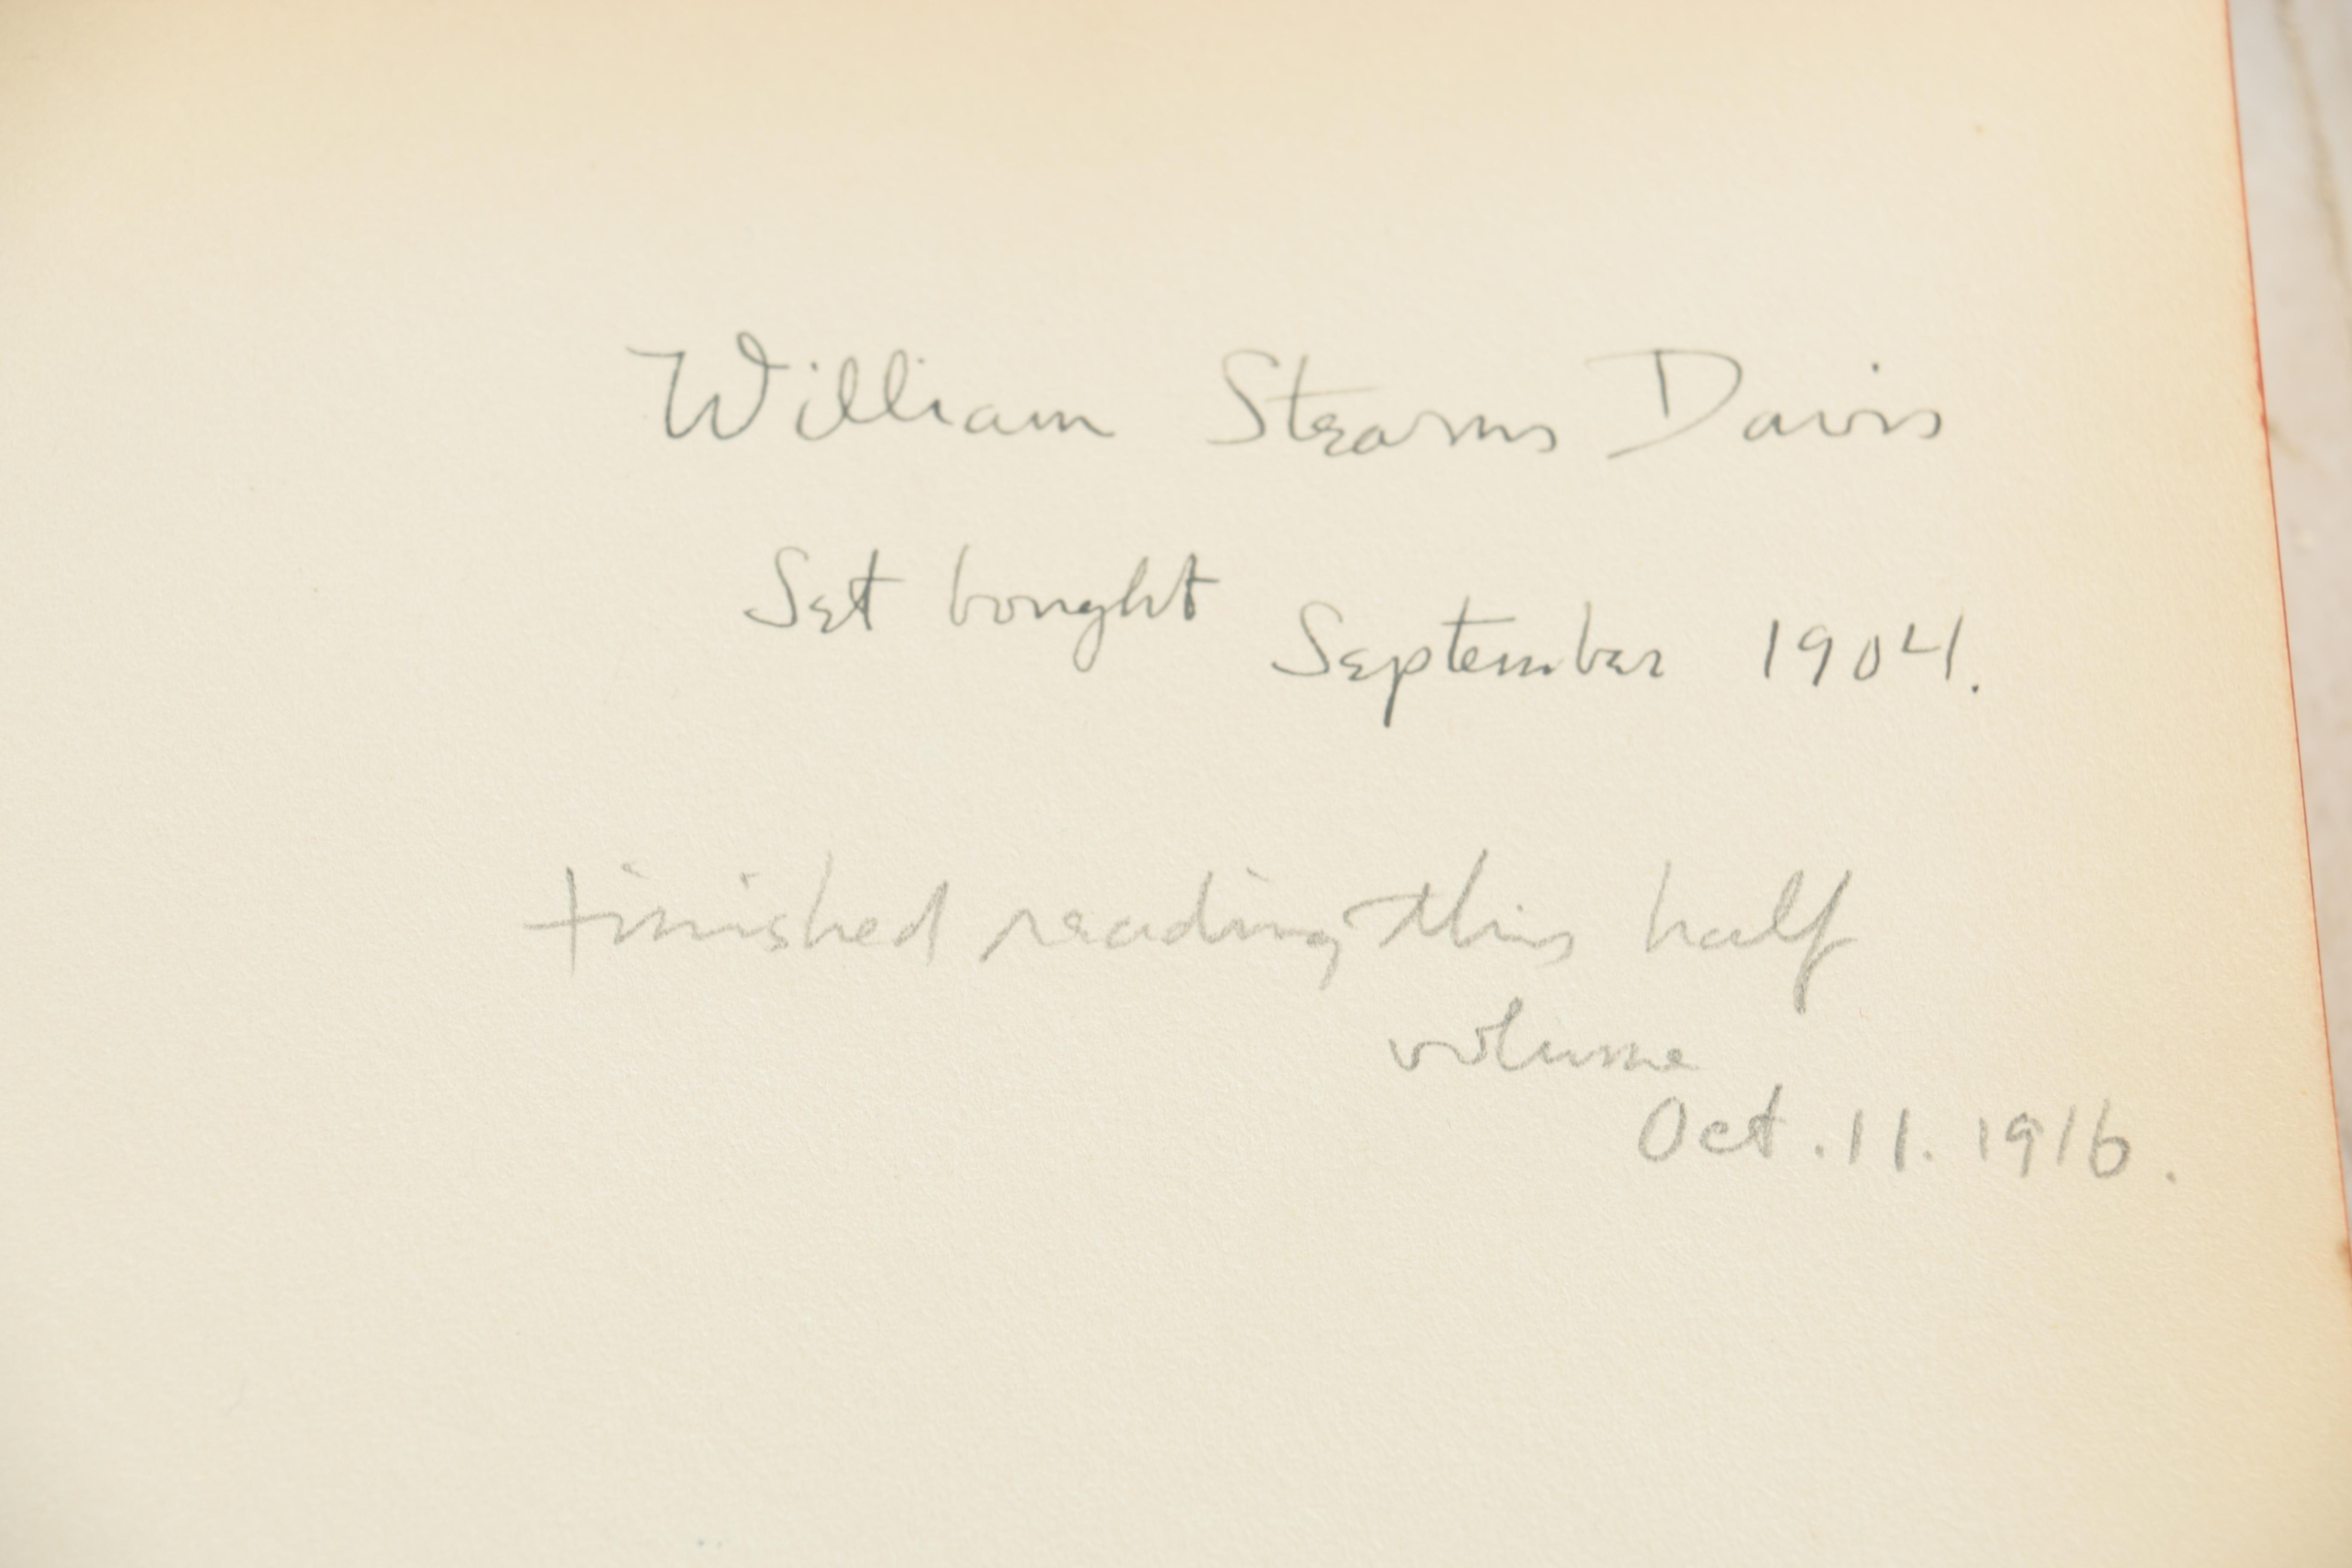 William Stearns Davis
Set bought September 1904.
Finished reading this half
volume
Oct. 11. 1916.